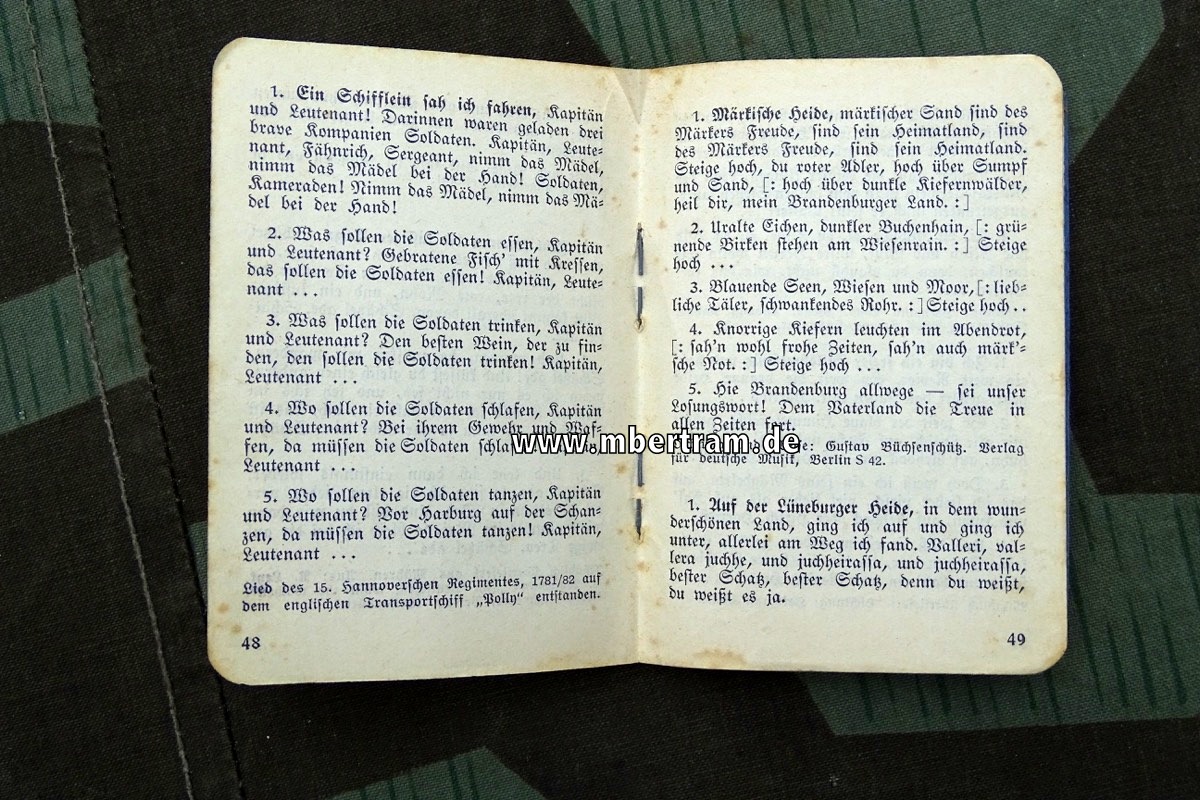 1. Ein Schifflein sah ich fahren, Kapitän
und Leutenant! Darinnen waren geladen drei
brave Kompanien Soldaten. Kapitän, Leute-
nant, Fähnrich, Sergeant, nimm das Mädel,
nimm das Mädel bei der Hand! Soldaten,
Kameraden! Nimm das Mädel, nimm das Mä-
del bei der Hand!
2. Was sollen die Soldaten essen, Kapitän
und Leutenant? Gebratene Fisch' mit Kressen,
das sollen die Soldaten essen! Kapitän, Leute-
nant ...
3. Was sollen die Soldaten trinken, Kapitän
und Leutenant? Den besten Wein, der zu fin-
den, den sollen die Soldaten trinken! Kapitän,
Leutenant ...
4. Wo sollen die Soldaten schlafen, Kapitän
und Leutenant? Bei ihrem Gewehr und Waf-
fen, da müssen die Soldaten schlafen!
Leutenant ...
5. Wo sollen die Soldaten tanzen, Kapitän
und Leutenant? Vor Harburg auf der Schan-
zen, da müssen die Soldaten tanzen! Kapitän,
Leutenant ...
Lied des 15. Hannoverschen Regimentes, 1781/82 auf
dem englischen Transportschiff „Polly“ entstanden.
48
1. Märkische Heide, märkischer Sand sind des
Märkers Freude, sind sein Heimatland, sind
des Märkers Freude, sind sein Heimatland.
Steige hoch, du roter Adler, hoch über Sumpf
und Sand, [: hoch über dunkle Kiefernwälder,
heil dir, mein Brandenburger Land. :]
2. Uralte Eichen, dunkler Buchenhain, [: grü-
nende Birken stehen am Wiesenrain. :] Steige
hoch ...
3. Blauende Seen, Wiesen und Moor, [: lieb-
liche Täler, schwankendes Rohr. :] Steige hoch ..
4. Knorrige Kiefern leuchten im Abendrot,
[: sah'n wohl frohe Zeiten, sah'n auch märk'-
sche Not. :] Steige hoch ...
5. Hie Brandenburg allwege — sei unser
Losungswort! Dem Vaterland die Treue in
allen Zeiten fort.
Gustav Büchsenschütz. Verlag
für deutsche Musik, Berlin S 42.
1. Auf der Lüneburger Heide, in dem wun-
derschönen Land, ging ich auf und ging ich
unter, allerlei am Weg ich fand. Valleri, val-
lera juchhe, und juchheirassa, und juchheirassa,
bester Schatz, bester Schatz, denn du weißt,
du weißt es ja.
49
www.mbertram.de